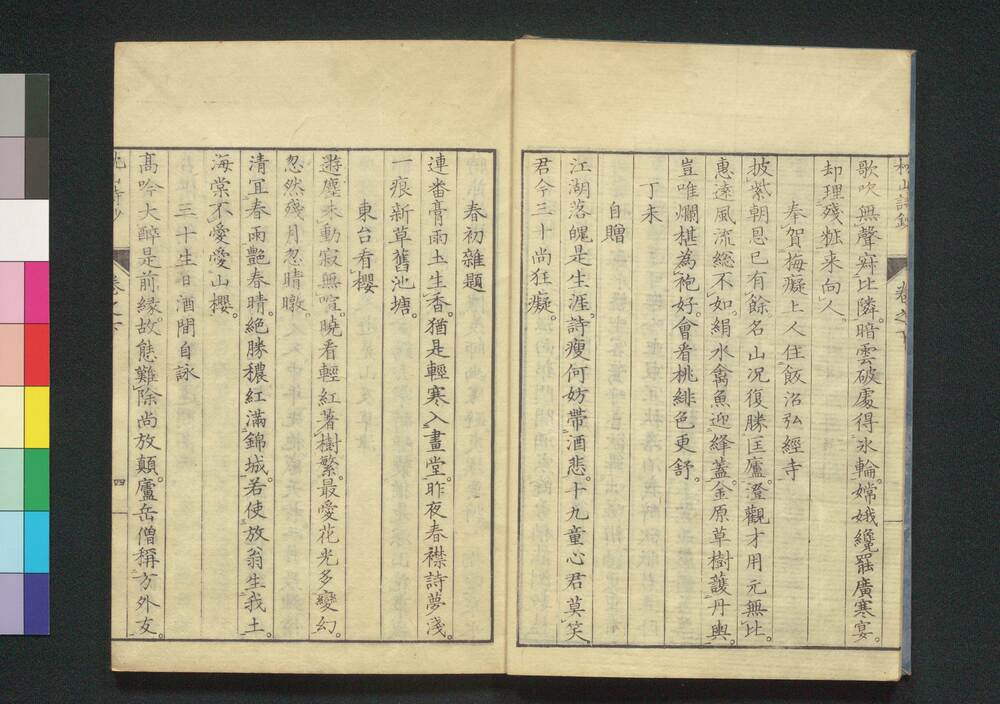 歌吹無聲寂比隣。暗雲破處得氷輪。嫦娥纔罷廣寒宴。
却理殘粧来向人。
奉賀梅癡上人住飯沼弘經寺
披紫朝恩已有餘。名山况復勝匡廬。澄觀才用元無比。
惠遠風流総不如。絹水禽魚迎絳蓋。金原草樹護丹輿。
豈唯爛椹為袍好。會看桃緋色更舒。
丁未
自贈
江湖落魄是生涯。詩瘦何妨帶酒悲。十九童心君莫笑
君今三十尚狂癡。
春初雜題
連番膏雨土生香。猶是輕寒入畫堂。昨夜春襟詩夢淺。
一痕新草舊池塘。
東台看櫻
遊塵未動寂無喧。曉看輕紅著樹繁。最愛花光多變幻。
忽然殘月忽晴暾。
清宜春雨艷春晴。絕勝穠紅滿錦城。若使放翁生我土。
海棠不愛愛山櫻。
三十生日酒間自詠
髙吟大醉是前縁。故態難除尚放顛。廬岳僧稱方外友。
四